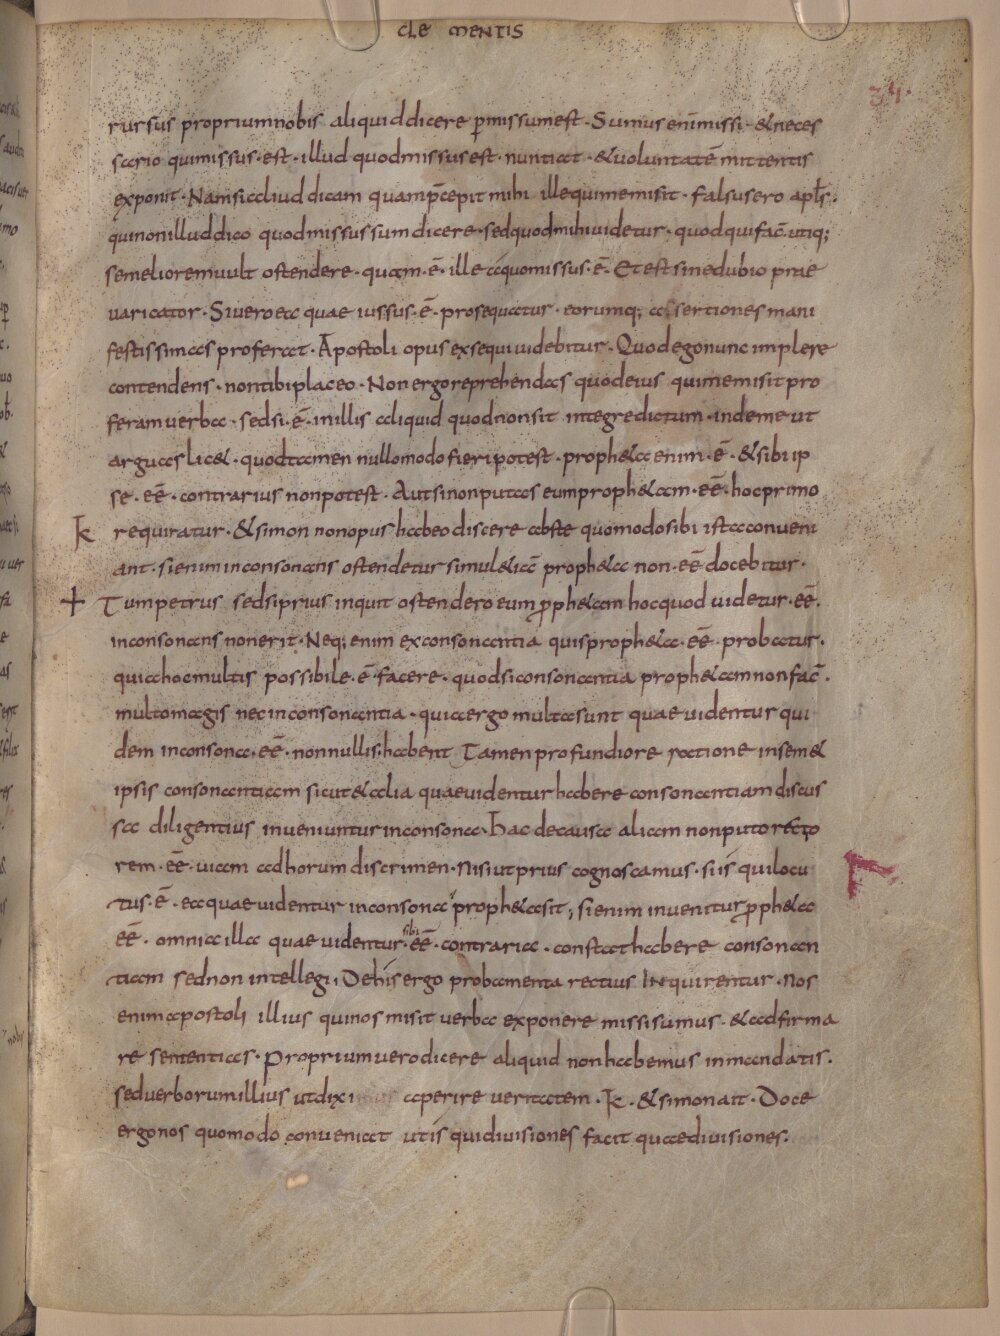 CLEMENTIS
34.
rursus proprium nobis aliquid dicere p̄missum est · Sumus enī missi · & neces
sario qui missus · est · illud quod missus est · nuntiat · & uoluntatē mittentis
exponit · Nam si aliud dicam quam p̄cepit mihi ille qui me misit · falsus ero apl̄s ·
qui non illud dico quod missus sum dicere · sed quod mihi uidetur · quod qui fac̄ utiq;
se meliorem uult ostendere · quam · ē · ille a quo missus · ē · Et est sine dubio prae
uaricator · Si uero ea quae iussus · ē · prosequatur · eorumq; assertiones mani
festissimas proferat · Apostoli opus exsequi uidebitur · Quod ego nunc implere
contendens · non tibi placeo · Non ergo reprehendas quod eius qui me misit pro
feram uerba · sed si · ē · in illis aliquid quod non sit integre dictum · inde me ut
arguas lic& · quod tamen nullo modo fieri potest · proph&a enim · ē · & sibi ip
se · eē · contrarius non potest · Aut si non putas eum proph&am · eē · hoc primo
K requiratur · & simon non opus habeo discere abste quomodo sibi ista conueni
ant · si enim inconsonans ostendetur simul &iā proph&a non · eē docebitur ·
+ Tum petrus sed si prius inquit ostendero eum p̄ph&am hoc quod uidetur · eē ·
inconsonans non erit · Neq; enim ex consonantia quis proph&a · eē · probatur ·
quia hoc multis possibile · ē · facere · quod si consonantia proph&am non fac̄ ·
multo magis nec inconsonantia · quia ergo multa sunt quae uidentur qui
dem inconsona · eē · nonnullis · habent Tamen profundiore ratione in sem&
ipsis consonantiam sicut & alia quae uidentur habere consonantiam discus
sa diligentius inueniuntur inconsona · Hac de causa aliam non puto recto
rem · eē · uiam ad horum discrimen · Nisi ut prius cognoscamus · si is qui locu
tus · ē · ea quae uidentur inconsona proph&a sit; si enim inuenitur p̄ph&a
eē · omnia illa quae uidentur · sibi eē · contraria · constat habere consonan
tiam sed non intellegi · De his ergo probamenta rectius INquirentur · Nos
enim apostoli illius qui nos misit uerba exponere missi sumus · & adfirma
re sententias · Proprium uero dicere aliquid non habemus in mandatis ·
sed uerborum illius ut dixi mus aperire ueritatem · K · & simon ait · Doce
ergo nos quomodo conueniat ut is qui diuisiones facit quae diuisiones ·